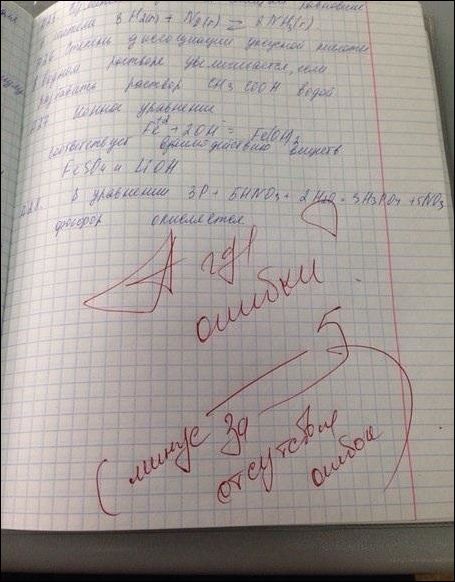 3 H2(г) + N2(г) ⇄ 2 NH3(г)
Степень диссоциации уксусной кислоты
в водном растворе увеличивается, если
разбавить раствор CH3COOH водой
Ионное уравнение
Fe+2 + 2OH- = Fe(OH)2
соответствует взаимодействию веществ
FeSO4 и LiOH
В уравнении 3P + 5HNO3 + 2H2O = 3H3PO4 + 5NO
фосфор окисляется
А где
ошибки
5
(минус за
отсутствие
ошибок)